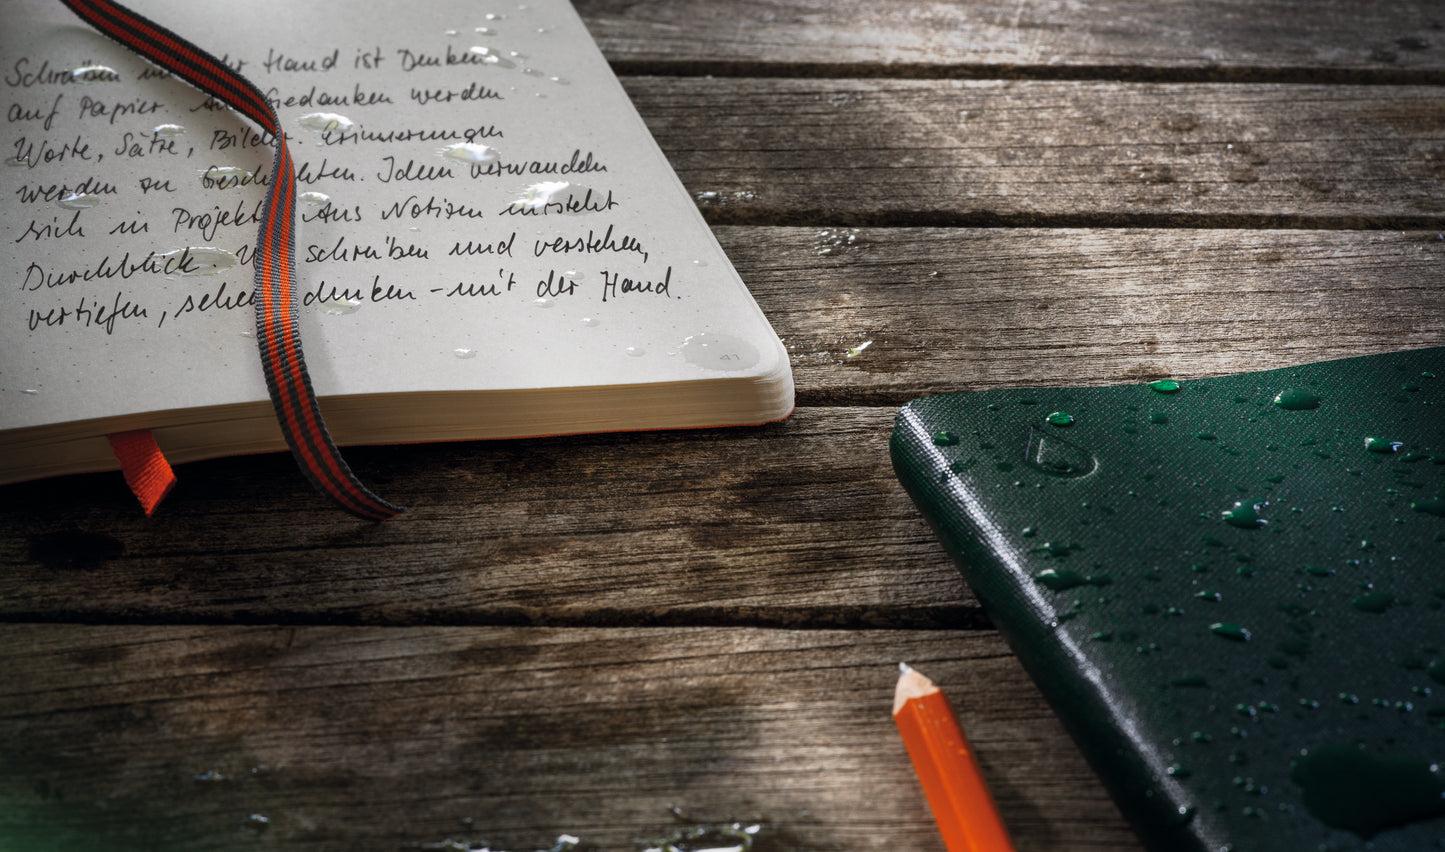 Schreiben mit der Hand ist Denken
auf Papier. Aus Gedanken werden
Worte, Sätze, Bilder. Erinnerungen
werden zu Geschichten. Ideen verwandeln
sich in Projekte. Aus Notizen entsteht
Durchblick. Wir schreiben und verstehen,
vertiefen, sehen, denken - mit der Hand.
41